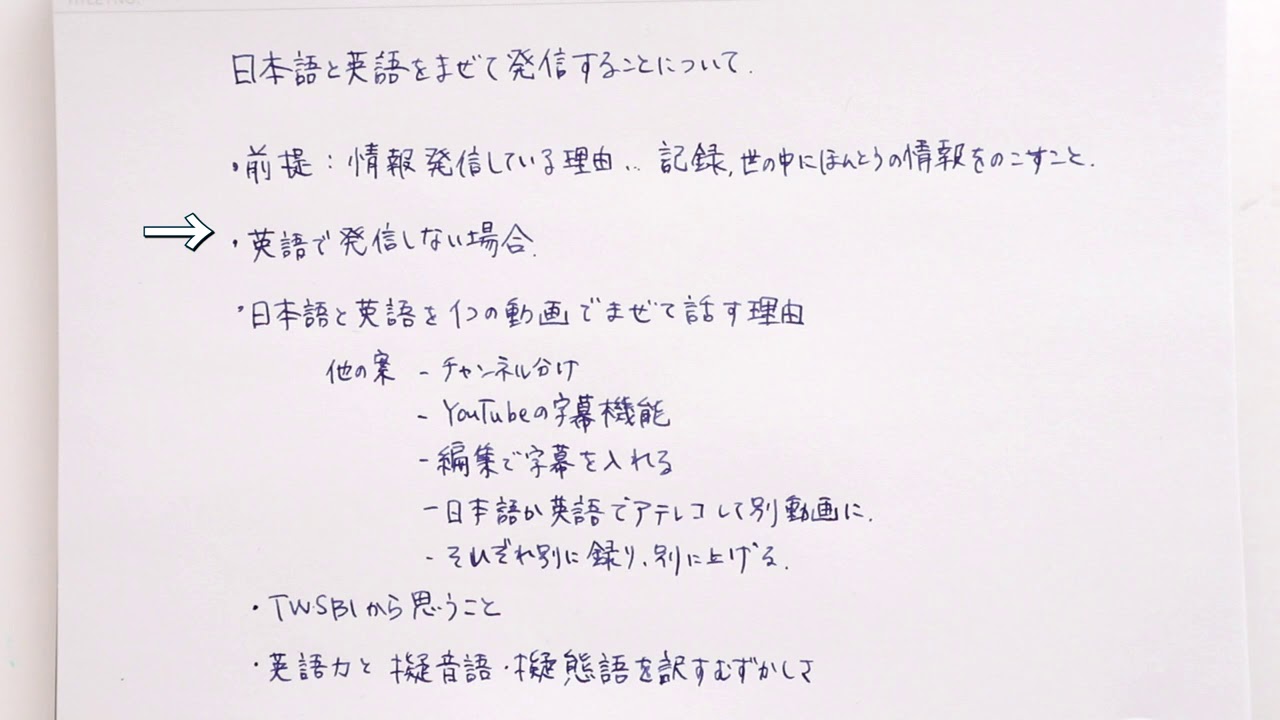 日本語と英語をまぜて発信することについて.
・前提：情報発信している理由… 記録,世の中にほんとうの情報をのこすこと.
・英語で発信しない場合.
・日本語と英語を1つの動画でまぜて話す理由
他の案 - チャンネル分け
- YouTubeの字幕機能
- 編集で字幕を入れる
- 日本語か英語でアテレコして別動画に.
- それぞれ別に録り、別に上げる.
・TWSBIから思うこと
・英語力と擬音語・擬態語を訳すむずかしさ